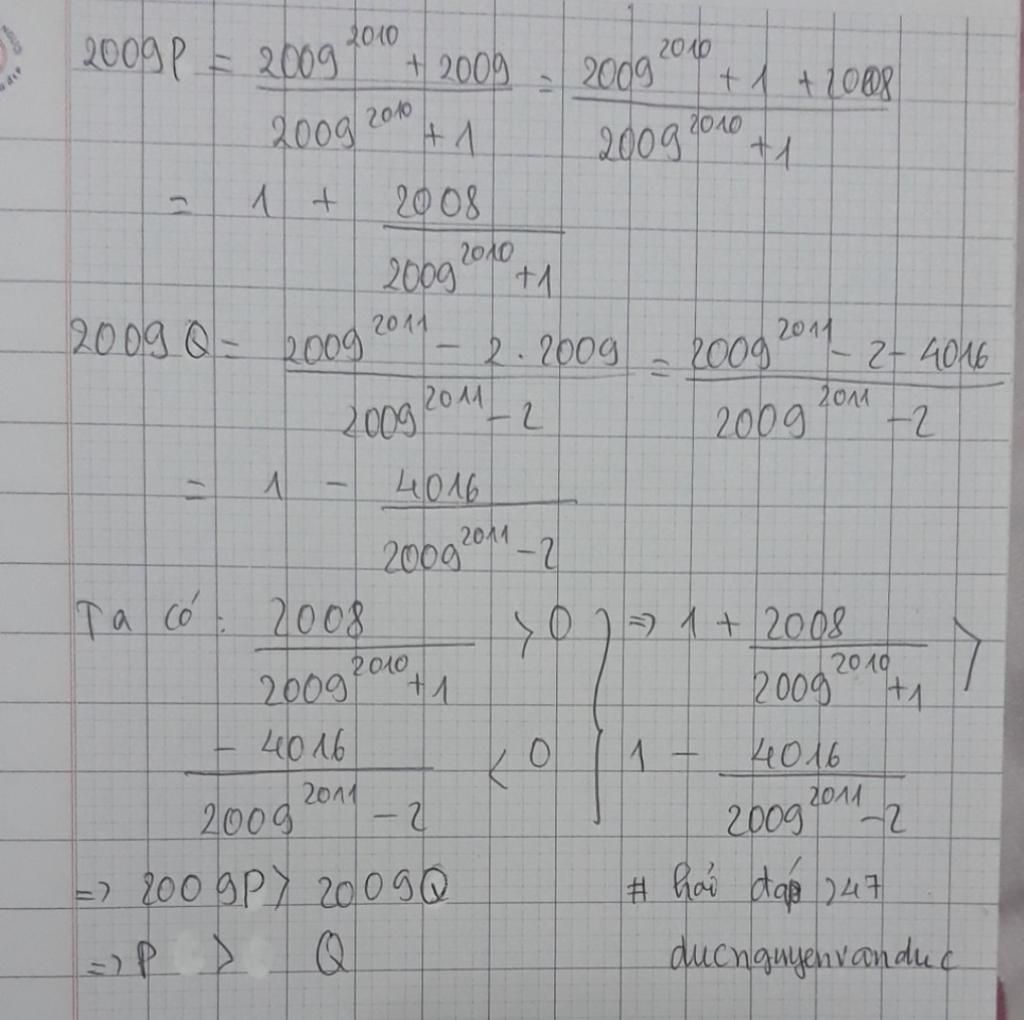 2009P = (2009^2010 + 2009)/(2009^2010 + 1) = (2009^2010 + 1 + 2008)/(2009^2010 + 1)
= 1 + 2008/(2009^2010 + 1)
2009Q = (2009^2011 - 2 . 2009)/(2009^2011 - 2) = (2009^2011 - 2 - 4016)/(2009^2011 - 2)
= 1 - 4016/(2009^2011 - 2)
Ta có : 2008/(2009^2010 + 1) > 0 } => 1 + 2008/(2009^2010 + 1) >
- 4016/(2009^2011 - 2) < 0 } 1 - 4016/(2009^2011 - 2)
=> 2009P > 2009Q # hỏi đáp 247
=> P > Q ducnguyenvanduc